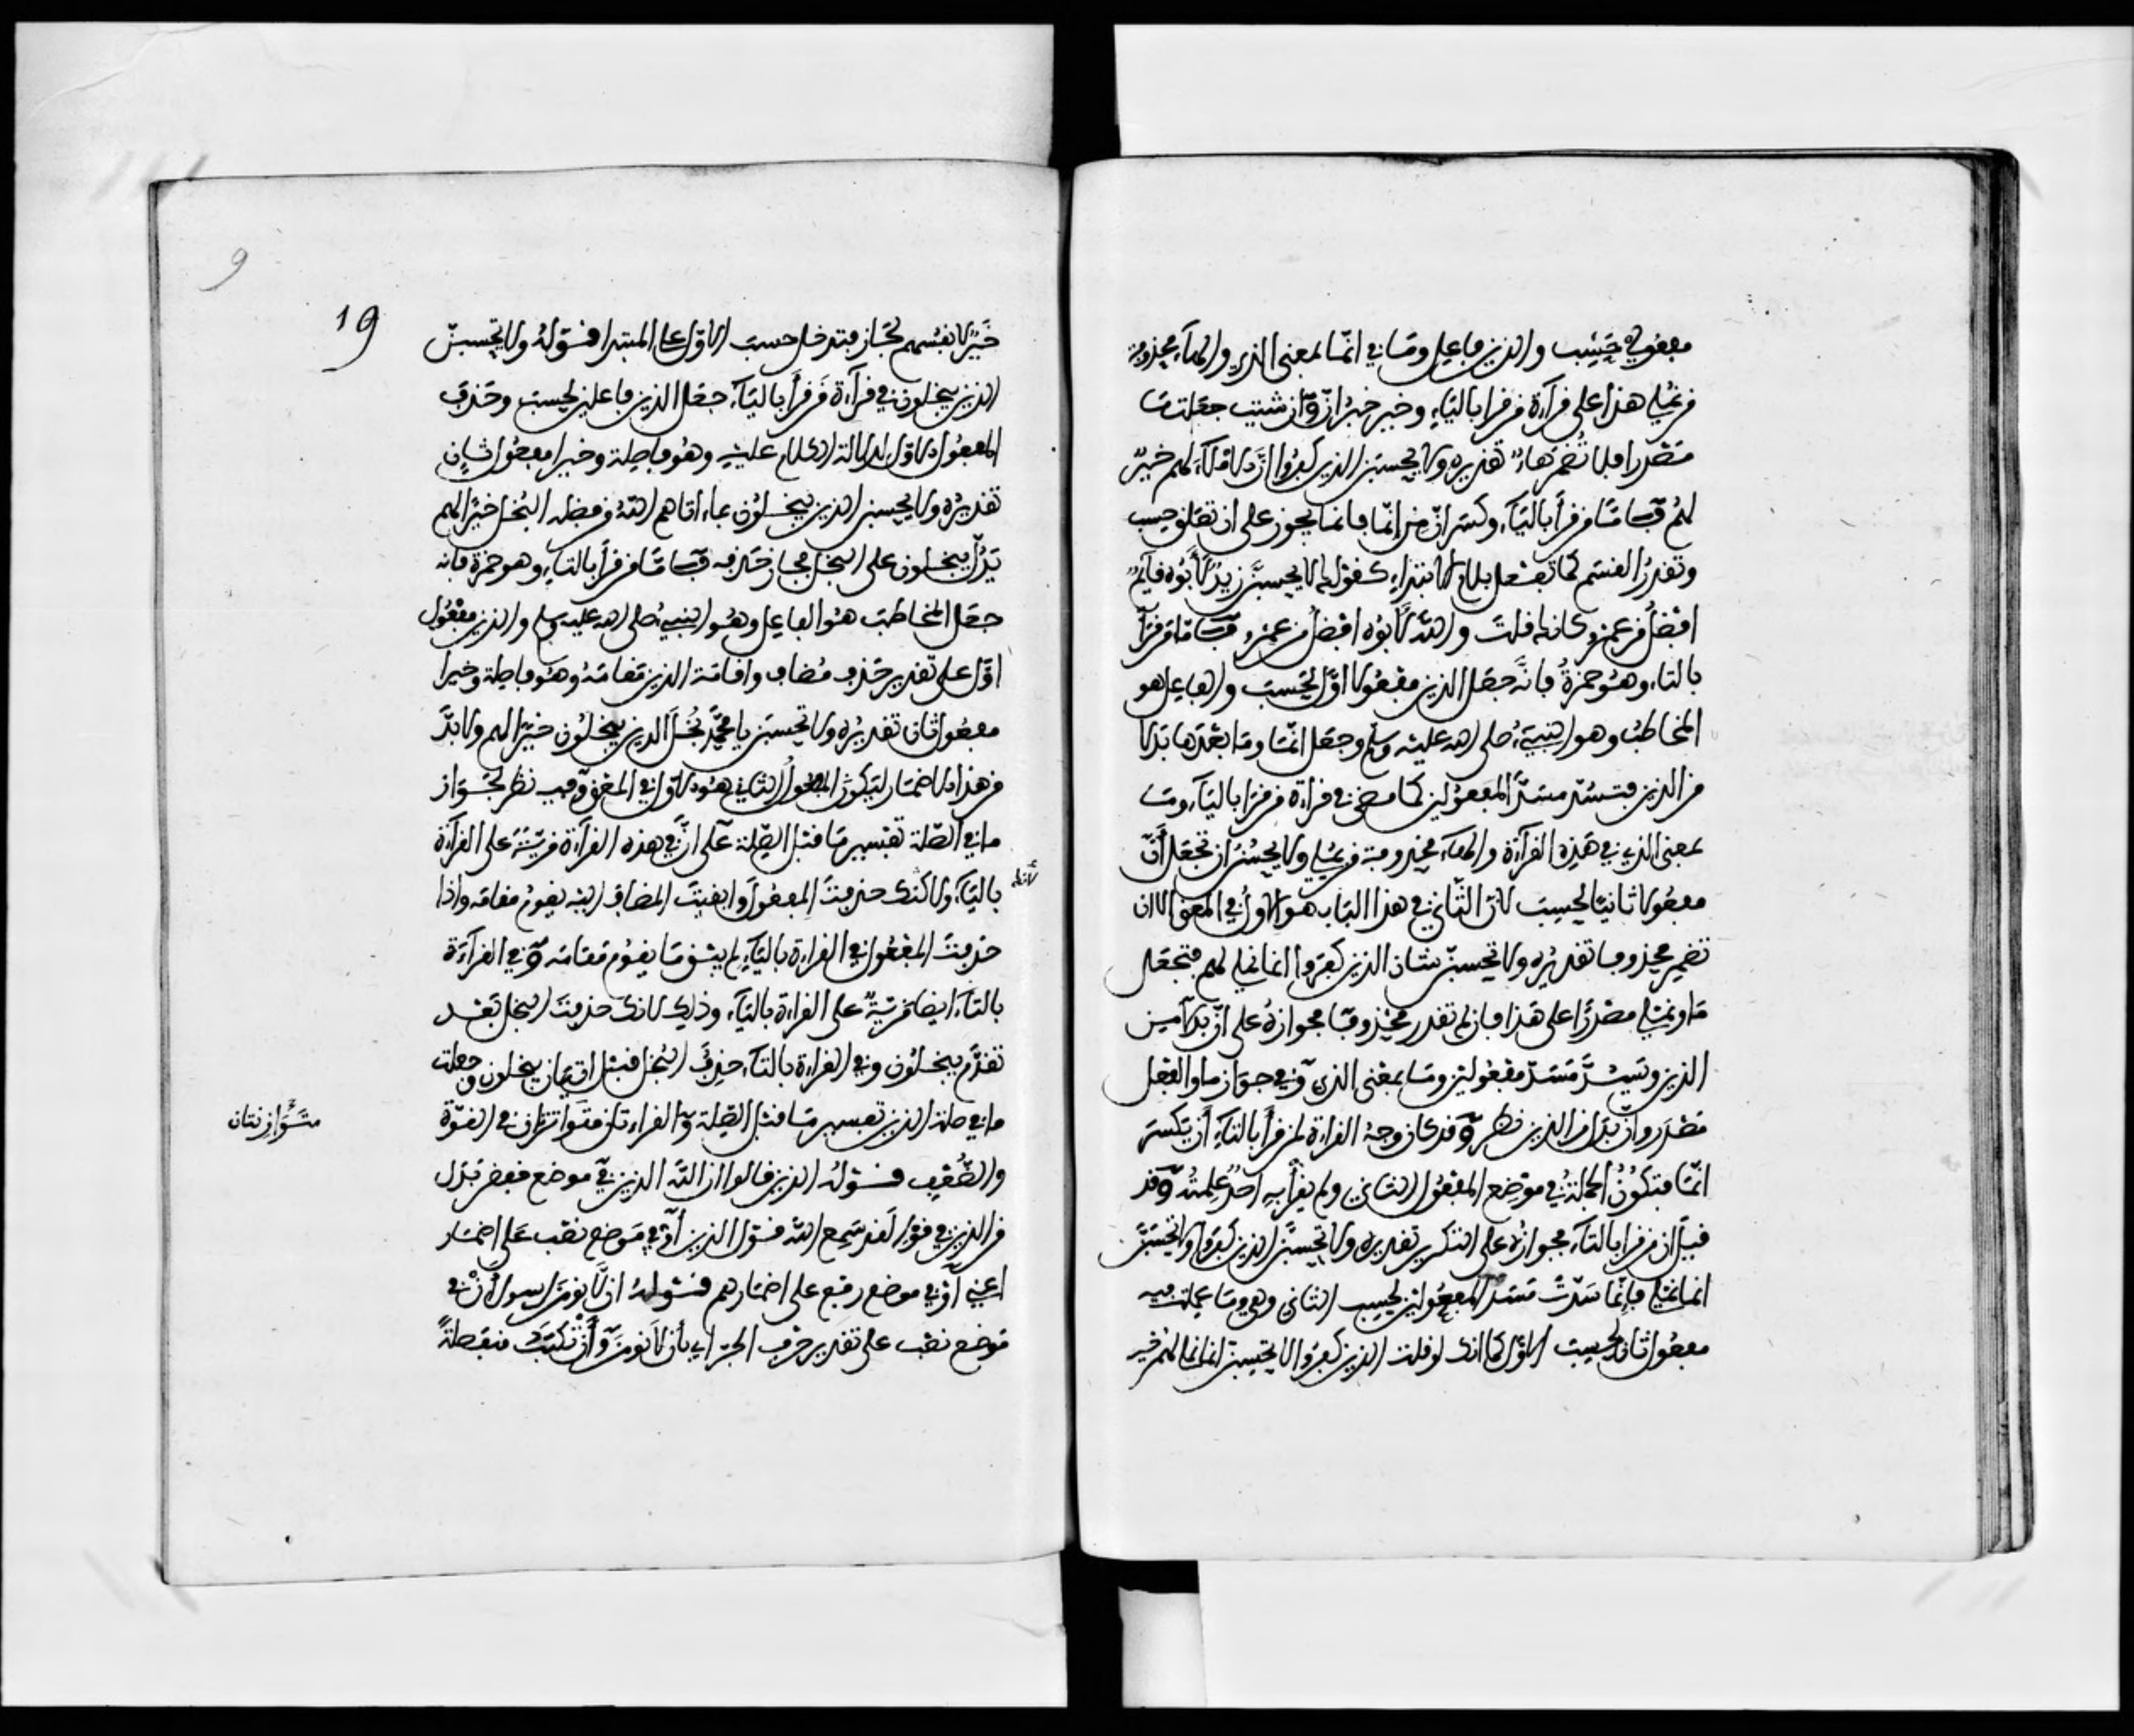 مفعولي حسب والذين فاعل وما في انما بمعنى الذي والهاء محذوفة
من نملي هذا على قراءة من قرا بالياء وخير خبر ان وان شئت جعلت ما
مصدرا فلا تضمر هاء تقديره ولا يحسبن الذين كفروا ان الاملاء لهم خير
لهم فاما من قرأ بالياء وكسر ان من انما فانما يجوز على ان تعلق حسب
وتقدر القسم كما تفعل بلام الابتداء كقولك لا يحسبن زيد لأبوه قائم
افضل من عمرو كانك قلت والله لأبوه افضل من عمرو فاما من قرأ
بالتاء وهو حمزة فانه جعل الذين مفعولا اول لحسب والفاعل هو
المخاطب وهو النبيء صلى الله عليه وسلم وجعل انما وما بعدها بدلا
من الذين فتسد مسد المفعولين كما مضى في قراءة من قرا بالياء وما
بمعنى الذي في هذه القراءة والهاء محذوفة من نملي ولا يحسن ان تجعل أن
مفعولا ثانيا لحسب لان الثاني في هذا الباب هو الاول في المعنى الا ان
تضمر محذوفا تقديره ولا تحسبن شان الذين كفروا انما نملي لهم فتجعل
ما ونملي مصدرا على هذا فان لم تقدر محذوفا فجوازه على ان بدلا من
الذين وتسد مسد مفعولين وما بمعنى الذي وفي جواز ما والفعل
مصدر وان بدل من الذين نظر وقد كان وجه القراءة لمن قرأ بالتاء أن يكسر
انما فتكون الجملة في موضع المفعول الثاني ولم يقرأ به احد علمته وقد
قيل ان من قرا بالتاء فجوازه على التكرير تقديره ولا تحسبن الذين كفروا ولا تحسبن
انما نملي فانما سدت مسد المفعولين لحسب الثاني وهي وما عملت فيه
مفعول ثان لحسب الاول كما انك لو قلت الذين كفروا لا تحسبن انما نملي لهم خير
19
خير لانفسهم لجاز فتدخل حسب الاول على المبتدا قوله ولا تحسبن
الذين يبخلون في قراءة من قرأ بالياء جعل الذين فاعلين لحسب وحذف
المفعول الاول لدلالة الكلام عليه وهو فاصلة وخيرا مفعول ثان
تقديره ولا يحسبن الذين يبخلون بما ءاتاهم الله من فضله البخل خيرا لهم
يدل يبخلون على البخل فجاز حذفه فاما من قرأ بالتاء وهو حمزة فانه
جعل المخاطب هو الفاعل وهو النبيء صلى الله عليه وسلم والذين مفعول
اول على تقدير حذف مضاف واقامة الذين مقامه وهو فاصلة وخيرا
مفعول ثان تقديره ولا تحسبن يا محمد بخل الذين يبخلون خيرا لهم ولا بد
من هذا الاضمار ليكون المفعول الثاني هو الاول في المعنى وفيه نظر لجواز
ما في الصلة تفسير ما قبل الصلة على ان في هذه القراءة مزية على القراءة
بالياء ولانك حذفت المفعول وابقيت المضاف اليه يقوم مقامه واذا
لأنك
حذفت المفعول في القراءة بالياء لم يبق ما يقوم مقامه وفي القراءة
بالتاء ايضا مزية على القراءة بالياء وذلك لانك حذفت البخل بعد
تقدم يبخلون وفي القراءة بالتاء حذف البخل قبل اتيان يبخلون وجعلت
ما في صلة الذين تفسير ما قبل الصلة والقراءتان متوازيتان في القوة
متوازنتان
والضعف قوله الذين قالوا ان الله الذين في موضع خفض بدل
من الذين في قوله لقد سمع الله قول الذين او في موضع نصب على اضمار
اعني او في موضع رفع على اضمار هم قوله ان لا نومن لرسول أن في
موضع نصب على تقدير حرف الجر اي بأن لا نومن وأن تكتب منفصلة